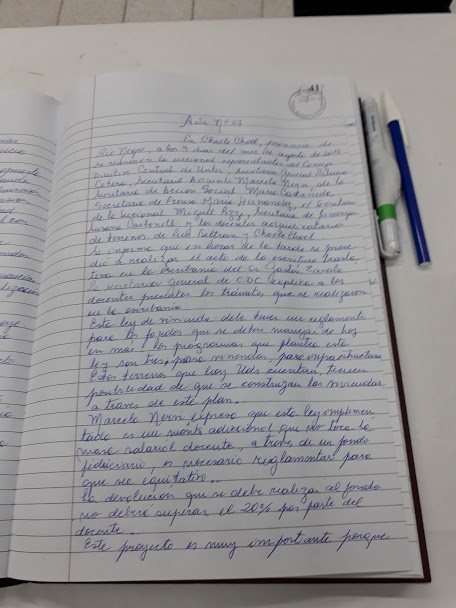 41
Acta N° 01
En Choele Choel, provincia de
Río Negro, a los 9 días del mes de agosto de 2019
se reunieron la seccional representantes del Consejo
Directivo Central de Unter, Secretario General
Secretario Adjunto Marcelo Nervi, de la
Secretaria de Acción Social María Castañeda
Secretario de Prensa Mario Hernández, el Secretario
de la Seccional Miguel Secretaria de Finanzas
Susana y los docentes adjudicatarios
de terrenos de Luis Beltrán y Choele Choel.
Se informa que en horas de la tarde se proce
dió a realizar el acto de la escritura trasla
tiva en la escribanía del Sr. Gastón Zavala
La secretaria General de CDC explica a los
docentes presentes los trámites, que se realizaron
en la escribanía
Esta ley de vivienda debe tener un reglamento
para los fondos que se deben manejar de hoy
en más, los programas que plantea esta
ley son tres, para viviendas, para infraestructura
Estos terrenos que hoy Uds cuentan, tienen
posibilidad de que se construyan las viviendas,
a través de este plan.
Marcelo Nervi expresa que esta ley implemen
tada es un monto adicional que no toca la
masa salarial docente, a través de un fondo
fiduciario, es necesario reglamentar para
que sea equitativo.
La devolución que se debe realizar al fondo
no deberá superar el 20% por parte del
docente.
Este proyecto es muy importante porque